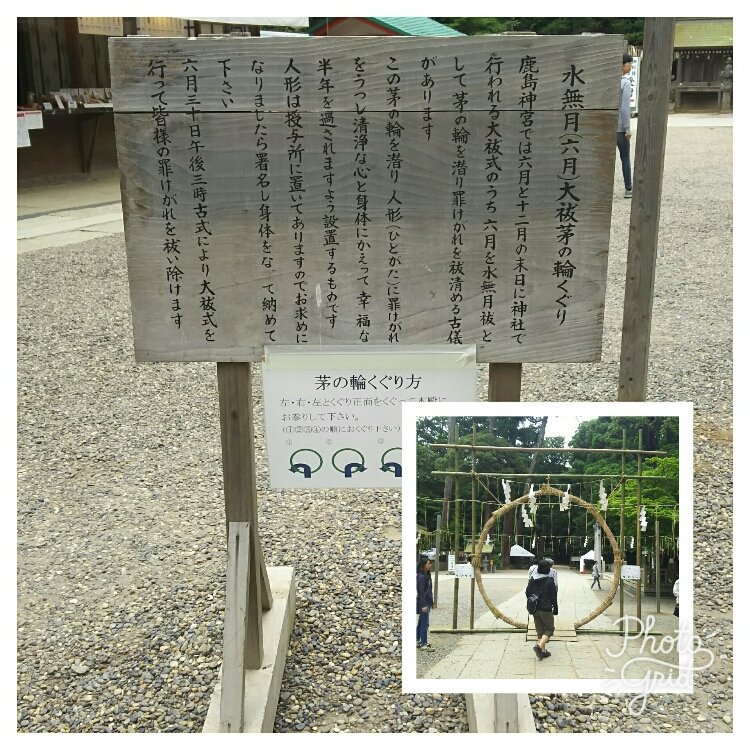 水無月(六月)大祓茅の輪くぐり
鹿島神宮では六月と十二月の末日に神社で
行われる大祓式のうち六月を水無月祓と
して茅の輪を潜り罪けがれを祓清める古儀
があります
この茅の輪を潜り人形(ひとがた)に罪けがれ
をうつし清浄な心と身体にかえって幸福な
半年を過されますよう設置するものです
人形は授与所に置いてありますのでお求めに
なりましたら署名し身体をなって納めて
下さい
六月三十日午後三時古式により大祓式を
行って皆様の罪けがれを祓い除けます
茅の輪くぐり方
左・右・左とくぐり正面をくぐって本殿に
お参りして下さい。
(①②③④の順におくぐり下さい)
① ②
Photo
Grid